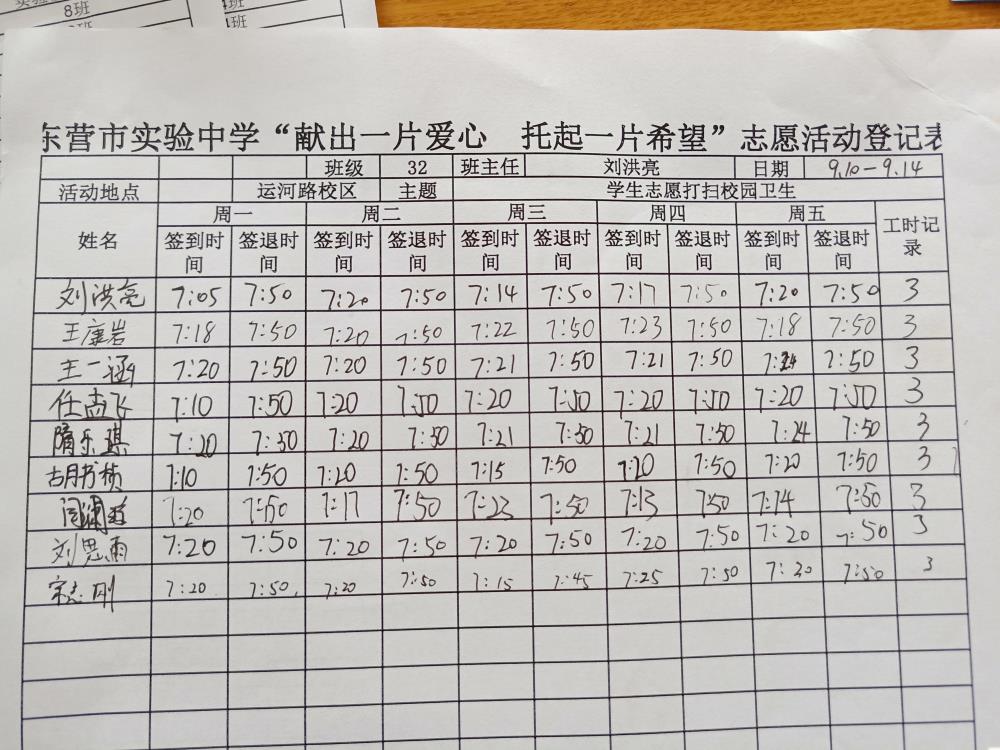 8班
东营市实验中学“献出一片爱心 托起一片希望”志愿活动登记表
班级 32 班主任 刘洪亮 日期 9.10-9.14
活动地点 运河路校区 主题 学生志愿打扫校园卫生
姓名 周一 周二 周三 周四 周五 工时记录
签到时间 签退时间 签到时间 签退时间 签到时间 签退时间 签到时间 签退时间 签到时间 签退时间
刘洪亮 7:05 7:50 7:20 7:50 7:14 7:50 7:17 7:50 7:20 7:50 3
王康岩 7:18 7:50 7:20 7:50 7:22 7:50 7:23 7:50 7:18 7:50 3
王一涵 7:20 7:50 7:20 7:50 7:21 7:50 7:21 7:50 7:24 7:50 3
任孟飞 7:10 7:50 7:20 7:50 7:20 7:50 7:20 7:50 7:20 7:50 3
隋乐琪 7:20 7:50 7:20 7:50 7:21 7:50 7:21 7:50 7:24 7:50 3
胡书桢 7:10 7:50 7:20 7:50 7:15 7:50 7:20 7:50 7:20 7:50 3
7:20 7:50 7:17 7:50 7:23 7:50 7:13 7:50 7:14 7:50 3
刘思雨 7:20 7:50 7:20 7:50 7:20 7:50 7:20 7:50 7:20 7:50 3
宋志刚 7:20 7:50 7:20 7:50 7:15 7:45 7:25 7:50 7:20 7:50 3